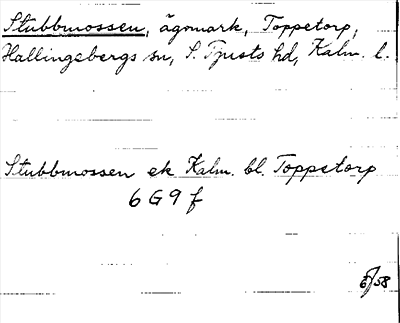 Stubbmossen, ägomark, Toppetorp,
Hallingebergs sn, S. Tjusts hd, Kalm. l.
Stubbmossen ek Kalm. bl. Toppetorp
6 G 9 f
58